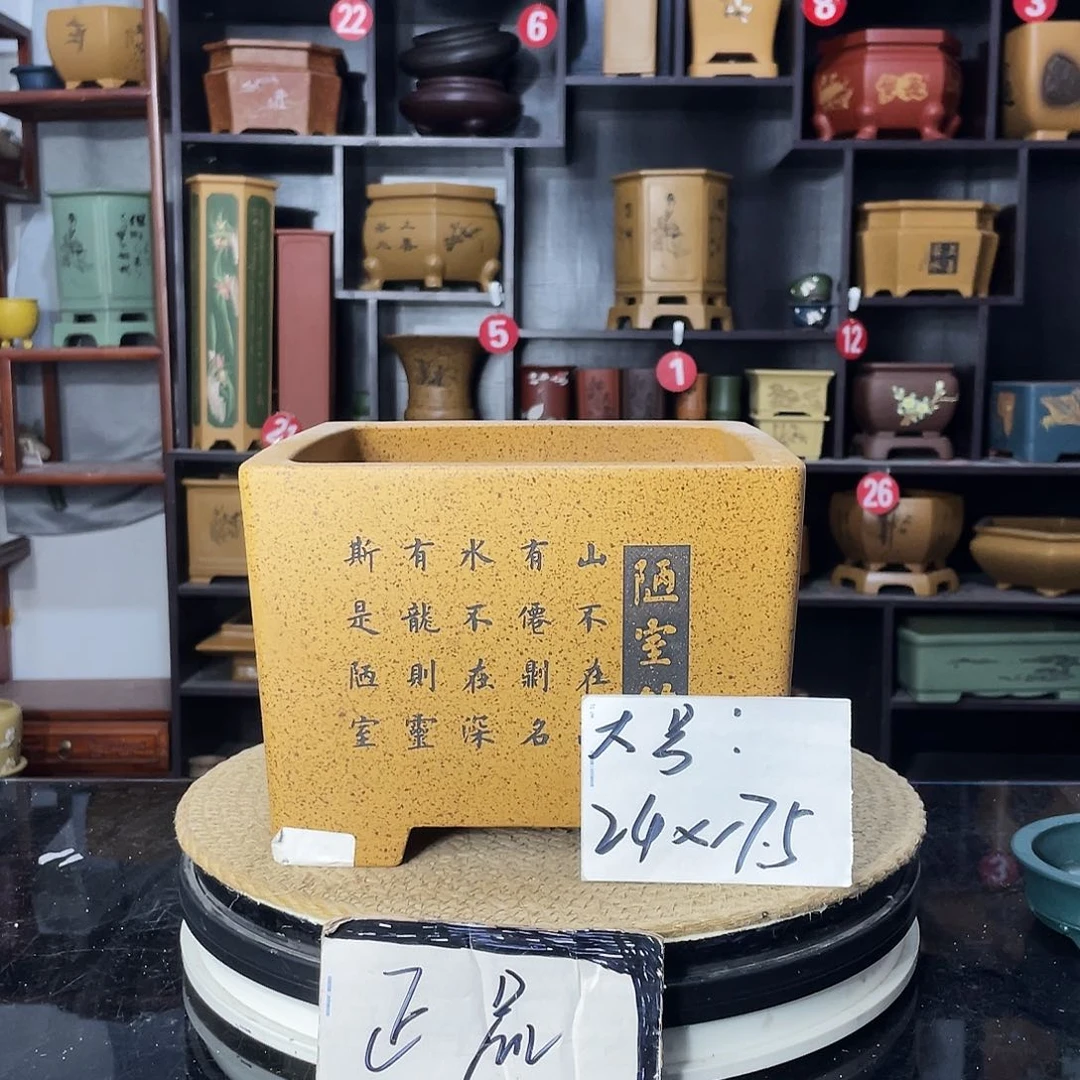 22
6
8
3
5
1
12
26
陋室
山不在
有僊則名
水不在深
有龍則靈
斯是陋室
大号:
24×17.5
正品